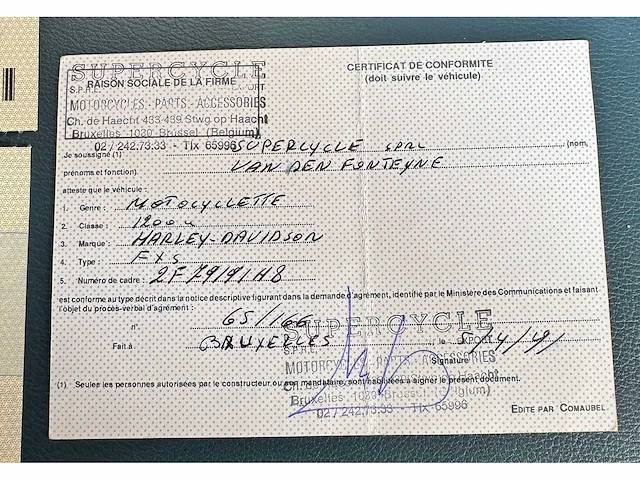 SUPERCYCLE
RAISON SOCIALE DE LA FIRME
S.P.R.L.
MOTORCYCLES - PARTS - ACCESSORIES
Ch. de Haecht 433-439 Stwg op Haacht
Bruxelles 1030 Brussel (Belgium)
02 / 242.73.33 - Tlx 65996
CERTIFICAT DE CONFORMITE
(doit suivre le véhicule)
Je soussigné (1) SUPERCYCLE SPRL (nom,
prénoms et fonction) VAN DEN FONTEYNE
atteste que le véhicule :
1. Genre : MOTOCYCLETTE
2. Classe : 1200
3. Marque : HARLEY-DAVIDSON
4. Type : FXS
5. Numéro de cadre : 2F79191H8
est conforme au type décrit dans la notice descriptive figurant dans la demande d'agrément, identifié par le Ministère des Communications et faisant
l'objet du procès-verbal d'agrément :
n° 65/166
SUPERCYCLE
Fait à BRUXELLES , le
S.P.R.L.
Signature
MOTORCYCLES - PARTS - ACCESSORIES
(1) Seules les personnes autorisées par le constructeur ou son mandataire, sont habilitées à signer le présent document.
Ch. de Haecht 433-439 Stwg op Haacht
Bruxelles 1030 Brussel (Belgium)
02 / 242.73.33 - Tlx 65996
EDITE PAR COMAUBEL